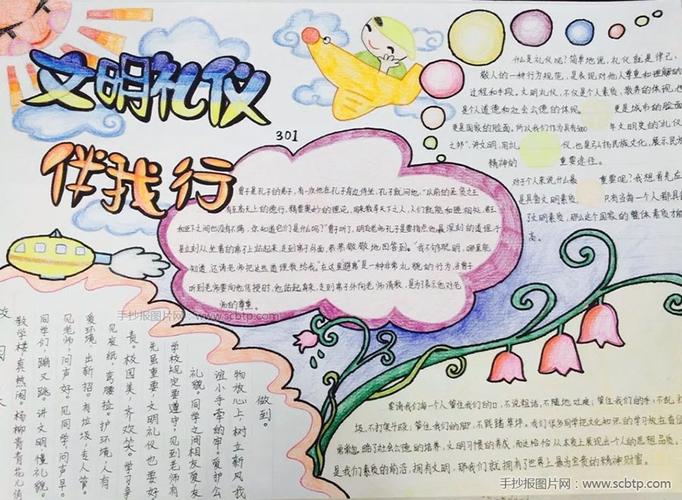 文明礼仪
伴我行
301
什么是礼仪呢?简单地说,礼仪就是律己、
敬人的一种行为规范,是表现对他人尊重和理解的
过程和手段。文明礼仪,不仅是个人素质、教养的体现,也
是个人道德和社会公德的体现。更是城市的脸面,
更是国家的脸面。所以我们作为具有5000年文明史的"礼仪
之邦",讲文明,用礼仪,也是弘扬民族文化、展示民
精神的重要途径。
对于个人来说什么最重要呢?我想首先应
是具备文明素质。只有当每一个人都具
文明素质,那么这个国家的整体素质
高。
曾子是孔子的弟子,有一次他在孔子身边侍坐,孔子就问他:"以前的圣贤之王
有至高无上的德行,精要奥妙的理论,用来教导天下之人,人们就能和睦相处,君王
和臣下之间也没有不满,你知道它们是什么吗?"曾子听了,明白老师孔子是要指点他最深刻的道理,于
是立刻从坐着的席子上站起来,走到席子外面,恭恭敬敬地回答道:"我不够聪明,哪里能
知道,还请老师把这些道理教给我。"在这里避席是一种非常礼貌的行为,当曾子
听到老师要向他传授时,他站起身来,走到席子外向老师请教,是为了表示他对老
师的尊重。
手抄报图片网:www.scbtp.com
做到。
物放心上,树立新风我
谊小手牵的牢。爱护公
礼貌。同学之间相友爱,友
学校规定要遵守,见到老师有
先虽重要,文明礼仪也要好
责。校园美,齐欢笑。学习争
见废纸,弯腰捡,护环境,人有
爱环境,出新招。有垃圾,专人管。
见老师,问声好。见同学,问声早。
同学们,蹦又跳,讲文明懂礼貌。
教学楼,真热闹。杨柳青青花儿俏
校园
要请我们每一个人管住我们的口,不说粗话,不随地吐痰;管住我们的手,不乱
圾、不打架斗殴,管住我们的脚,不践踏草坪。我们作为同学把文化知识的学习放在首位
常常忽略了社会公德的培养,文明习惯的养成,而这恰恰从本质上展现出一个人的思想品质。
是我们素质的前沿,拥有文明,那我们就拥有了世界上最为宝贵的精神财富。
手抄报图片网:www.scbtp.com